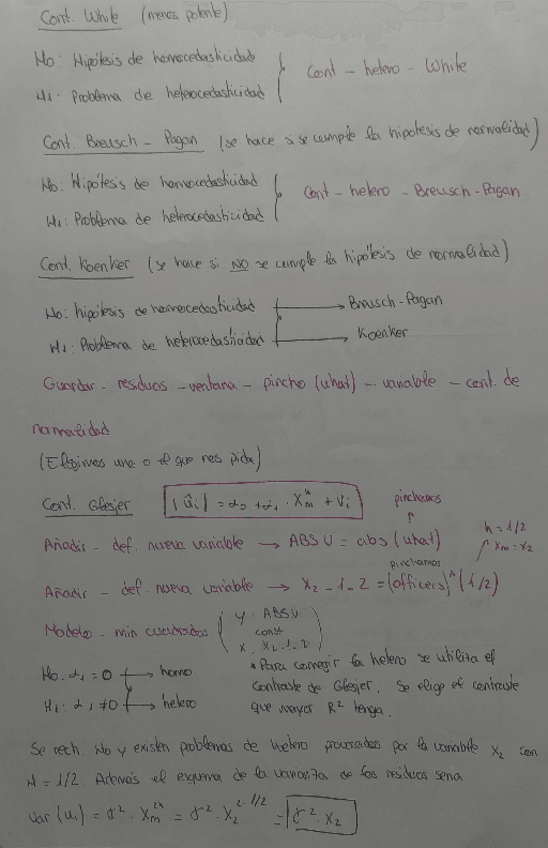 Cont. White (menos potente)
Ho: Hipótesis de homocedasticidad
H1: Problema de heterocedasticidad
Cont - hetero - White
Cont. Breusch - Pagan (se hace si se cumple la hipotesis de normalidad)
Ho: Hipótesis de homocedasticidad
H1: Problema de heterocedasticidad
Cont - hetero - Breusch-Pagan
Cont. Koenker (se hace si NO se cumple la hipótesis de normalidad)
Ho: hipótesis de homocedasticidad → Breusch-Pagan
H1: Problema de heterocedasticidad → Koenker
Guardar - residuos - ventana - pincho (uhat) - variable - cont. de
normalidad
(Elegimos uno o el que nos pida)
Cont. Glesjer |ûi| = α0 + α1 · Xm^h + Vi
pinchamos
Añadir - def. nueva variable → ABSU = abs(uhat)
h = 1/2
Xm = X2
pinchamos
Añadir - def. nueva variable → X2_1_2 = (officers)^(1/2)
Modelo - min cuadrados (Y · ABSU
const
X · X2_1_2)
Ho: α1 = 0 → homo
H1: α1 ≠ 0 → hetero
* Para corregir la hetero se utiliza el
Contraste de Glesjer. Se elige el contraste
que mayor R² tenga.
Se rech. Ho y existen problemas de hetero provocados por la variable X2 con
H = 1/2. Además el esquema de la varianza de los residuos sería
Var (ui) = σ² · Xm^2h = σ² · X2^2·1/2 = σ² · X2